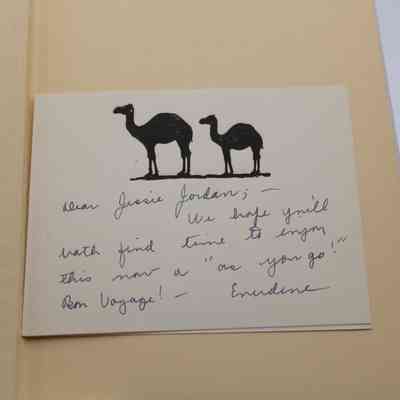 Dear Jessie Jordan; —
We hope you'll
both find time to enjoy
this now & "as you go!"
Bon Voyage! —